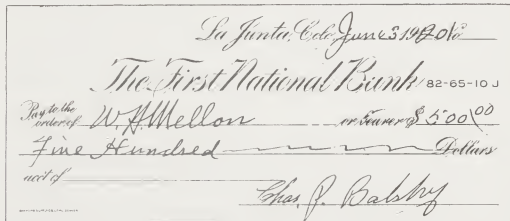 La Junta, Colo. June 3 1920 No
The First National Bank 82-65-10 J
Pay to the order of W. H. Mellon or Bearer $500.00
Five Hundred Dollars
acct of
Chas. P. Balsby